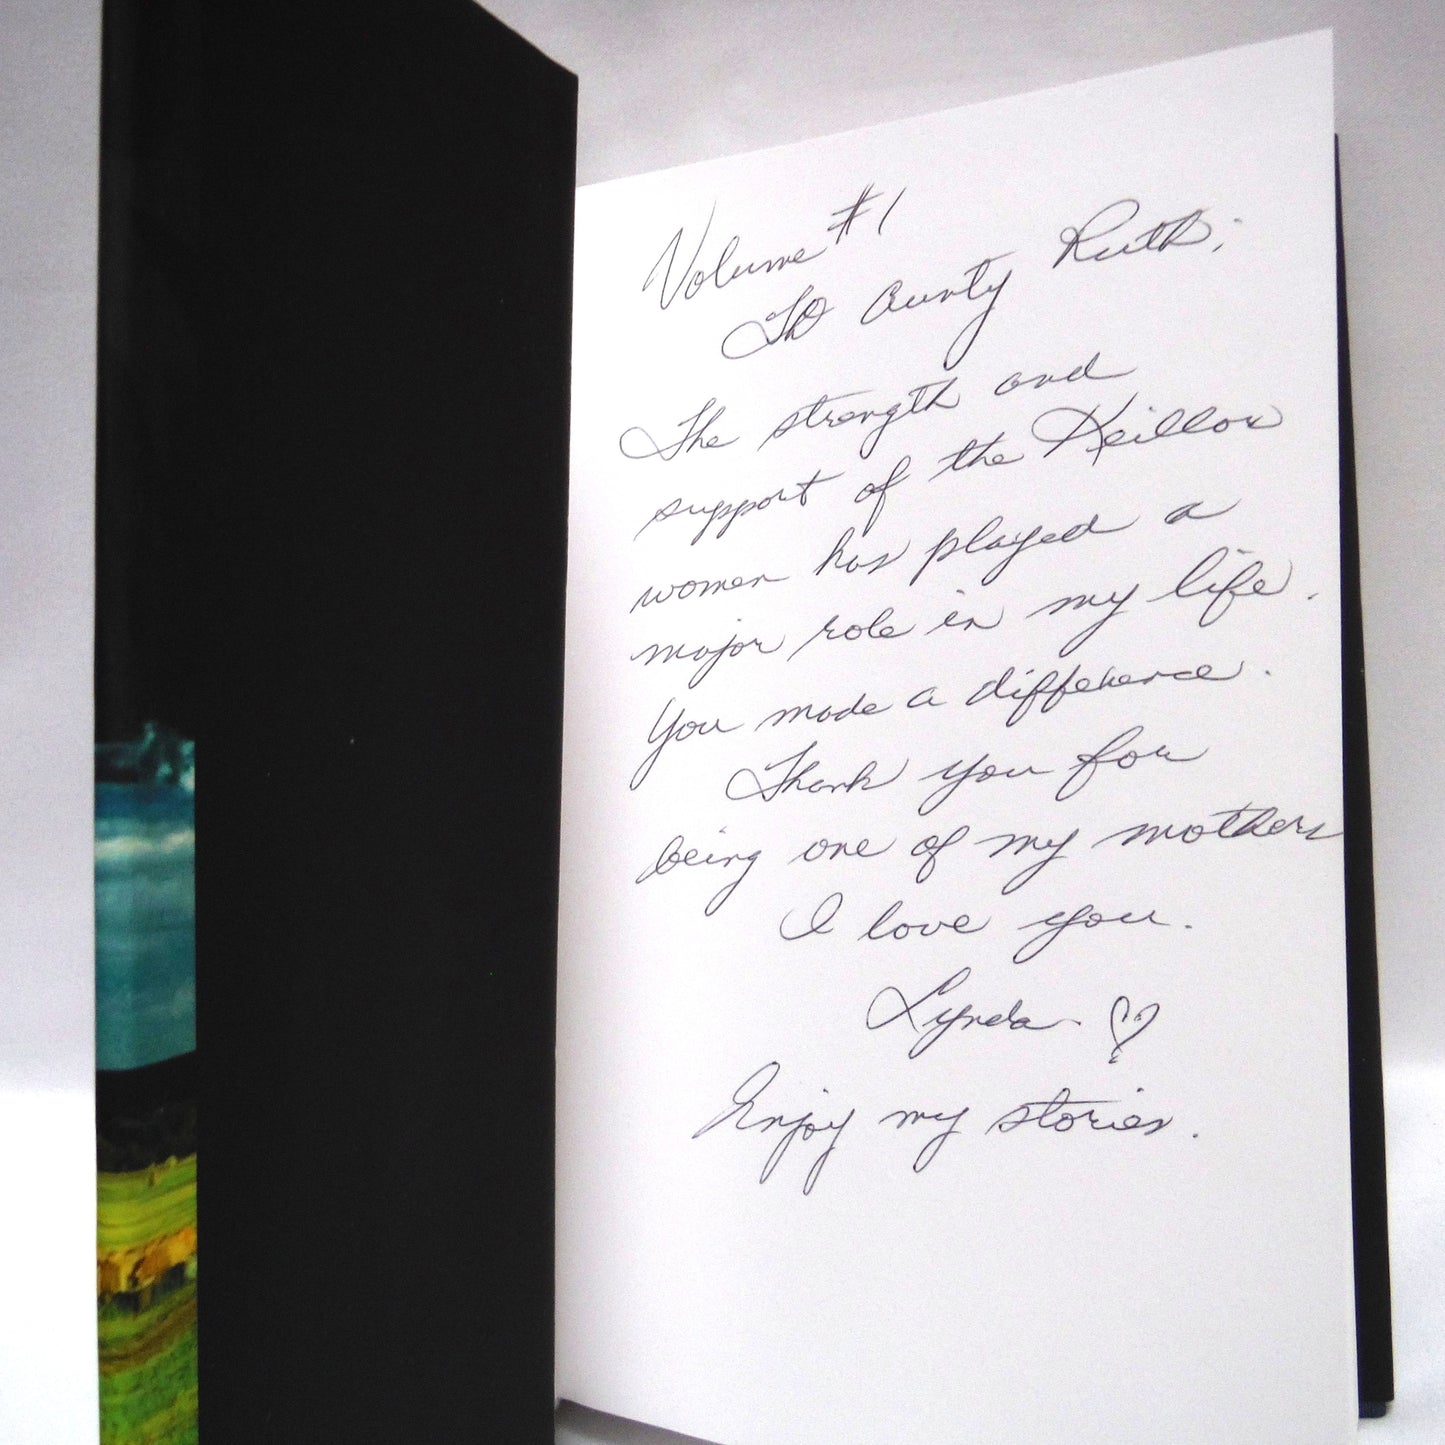 Volume #1
To Aunty Ruth;
The strength and
support of the Keillor
women has played a
major role in my life.
You made a difference.
Thank you for
being one of my mothers
I love you.
Lynda
Enjoy my stories.